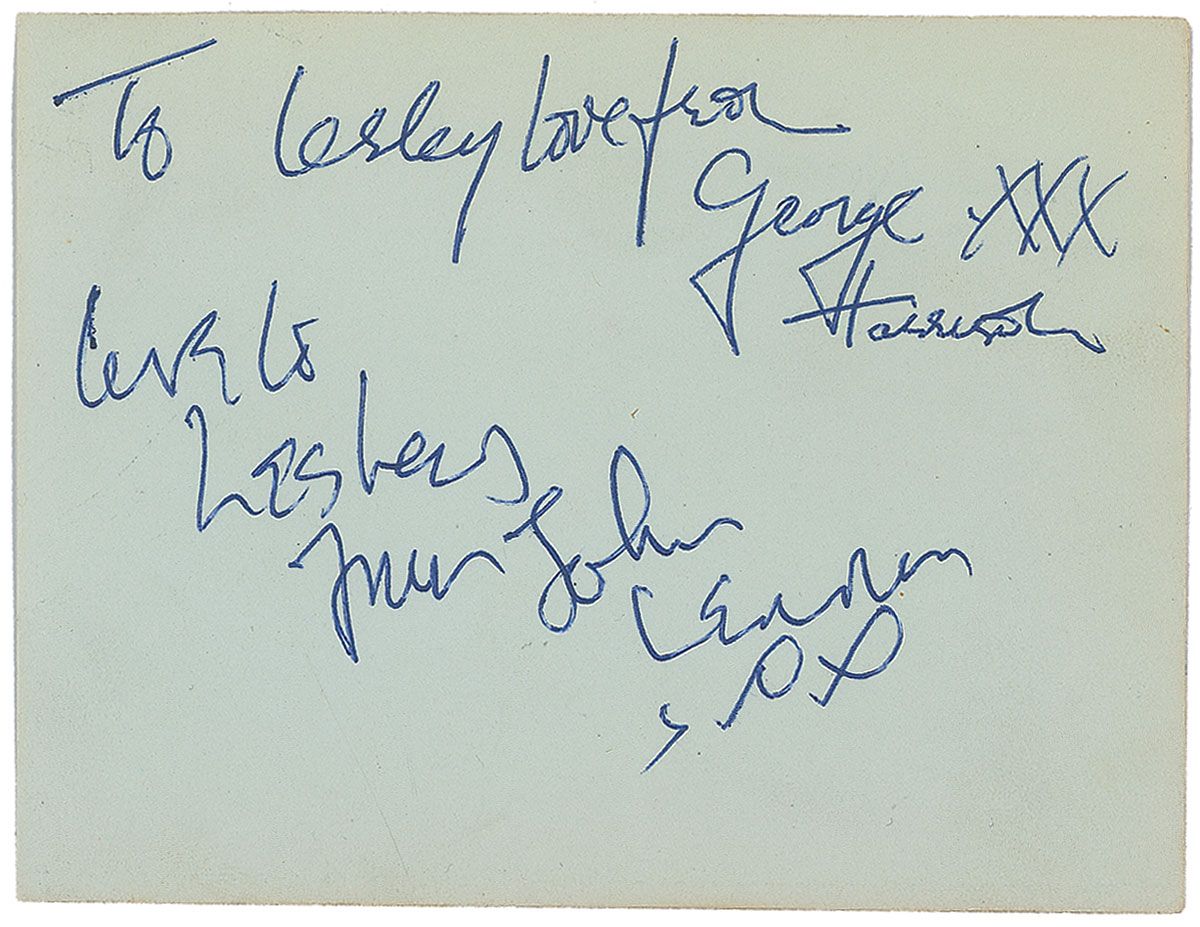 To Lesley love from
George XXX
Harrison
love to
Lesley
from John
Lennon